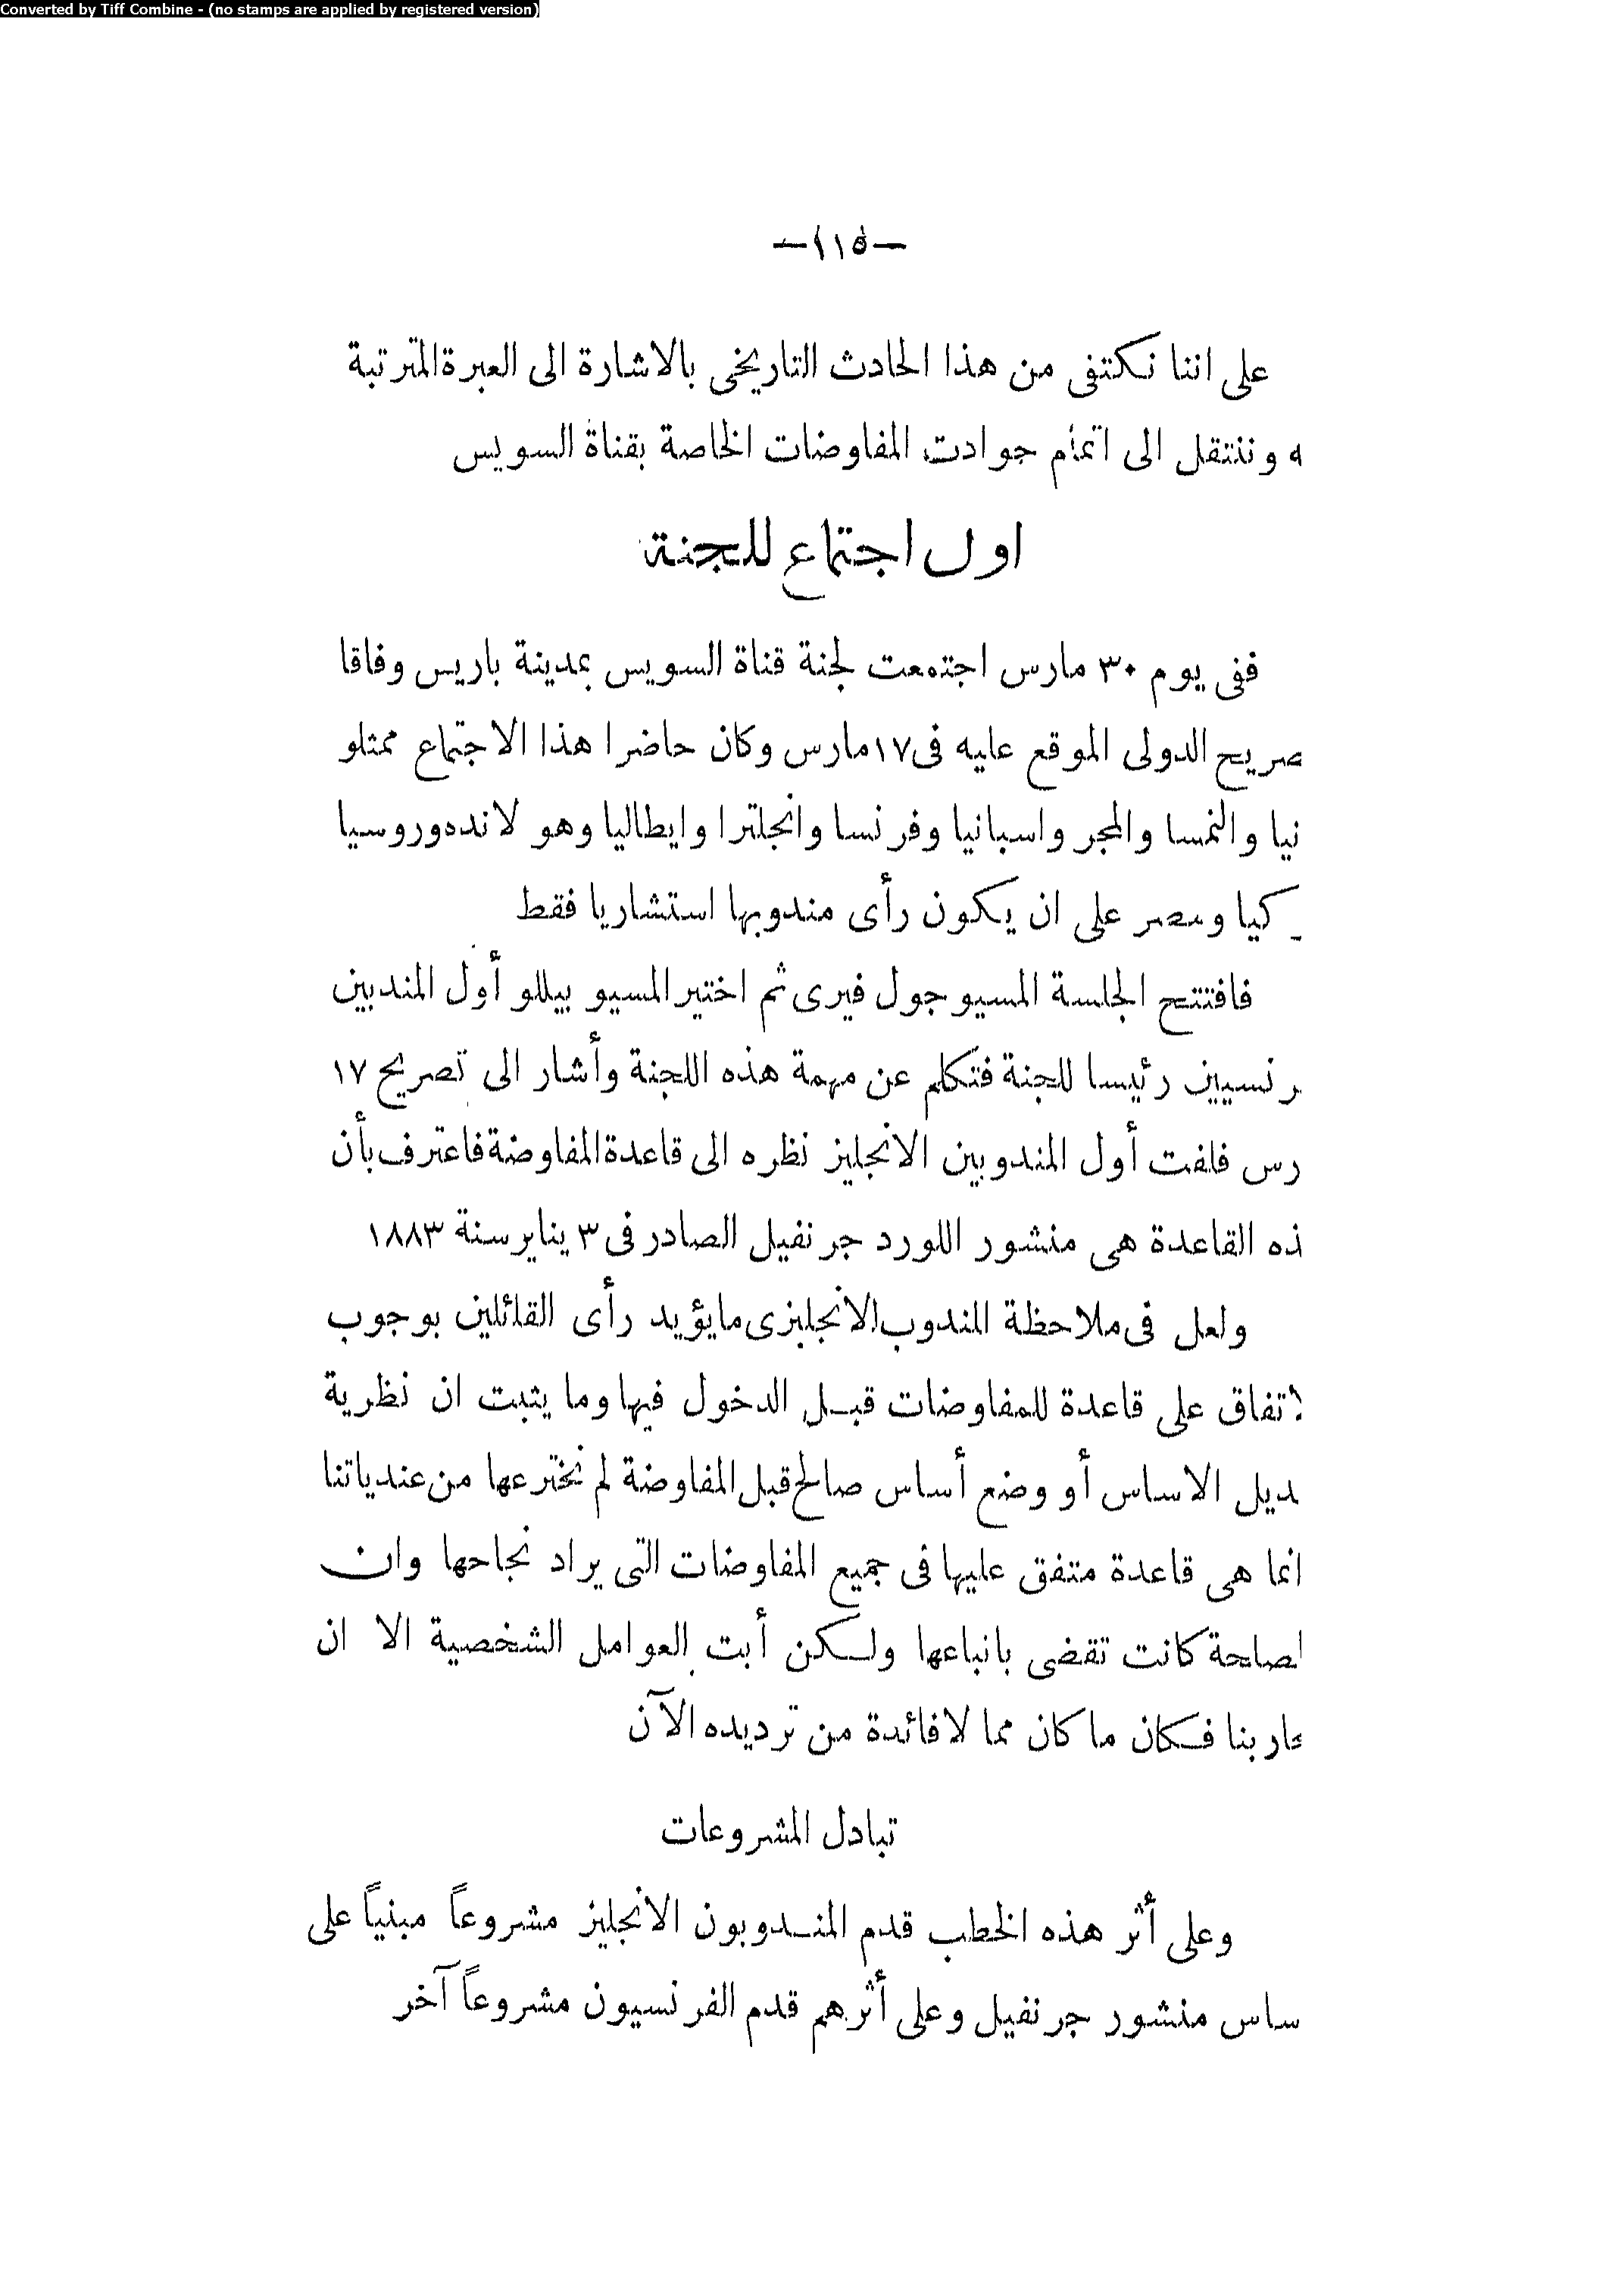 Converted by Tiff Combine - (no stamps are applied by registered version)
—١١٥—
على اننا نكتفى من هذا الحادث التاريخى بالاشارة الى العبرة المترتبة
ه وننتقل الى اتمام حوادت المفاوضات الخاصة بقناة السويس
اول اجتماع للجنة
ففى يوم ٣٠ مارس اجتمعت لجنة قناة السويس بمدينة باريس وفاقا
صريح الدولى الموقع عليه فى ١٧ مارس وكان حاضرا هذا الاجتماع ممثلو
نيا والنمسا والمجر واسبانيا وفرنسا وانجلترا وايطاليا وهو لانده وروسيا
كيا ومصر على ان يكون رأى مندوبها استشاريا فقط
فافتتح الجلسة المسيو جول فيرى ثم اختير المسيو بيللو أول المندبين
رنسيين رئيسا للجنة فتكلم عن مهمة هذه اللجنة وأشار الى تصريح ١٧
رس فلفت أول المندوبين الانجليز نظره الى قاعدة المفاوضة فاعترف بأن
ذه القاعدة هى منشور اللورد جرنفيل الصادر فى ٣ يناير سنة ١٨٨٣
ولعل فى ملاحظة المندوب الانجليزى ما يؤيد رأى القائلين بوجوب
لاتفاق على قاعدة للمفاوضات قبل الدخول فيها وما يثبت ان نظرية
ديل الاساس أو وضع أساس صالح قبل المفاوضة لم نخترعها من عندياتنا
انما هى قاعدة متفق عليها فى جميع المفاوضات التى يراد نجاحها وان
لصلحة كانت تقضى باتباعها ولكن أبت العوامل الشخصية الا ان
حاربنا فكان ما كان مما لا فائدة من ترديده الآن
تبادل المشروعات
وعلى أثر هذه الخطب قدم المندوبون الانجليز مشروعاً مبنياً على
ساس منشور جرنفيل وعلى أثرهم قدم الفرنسيون مشروعاً آخر